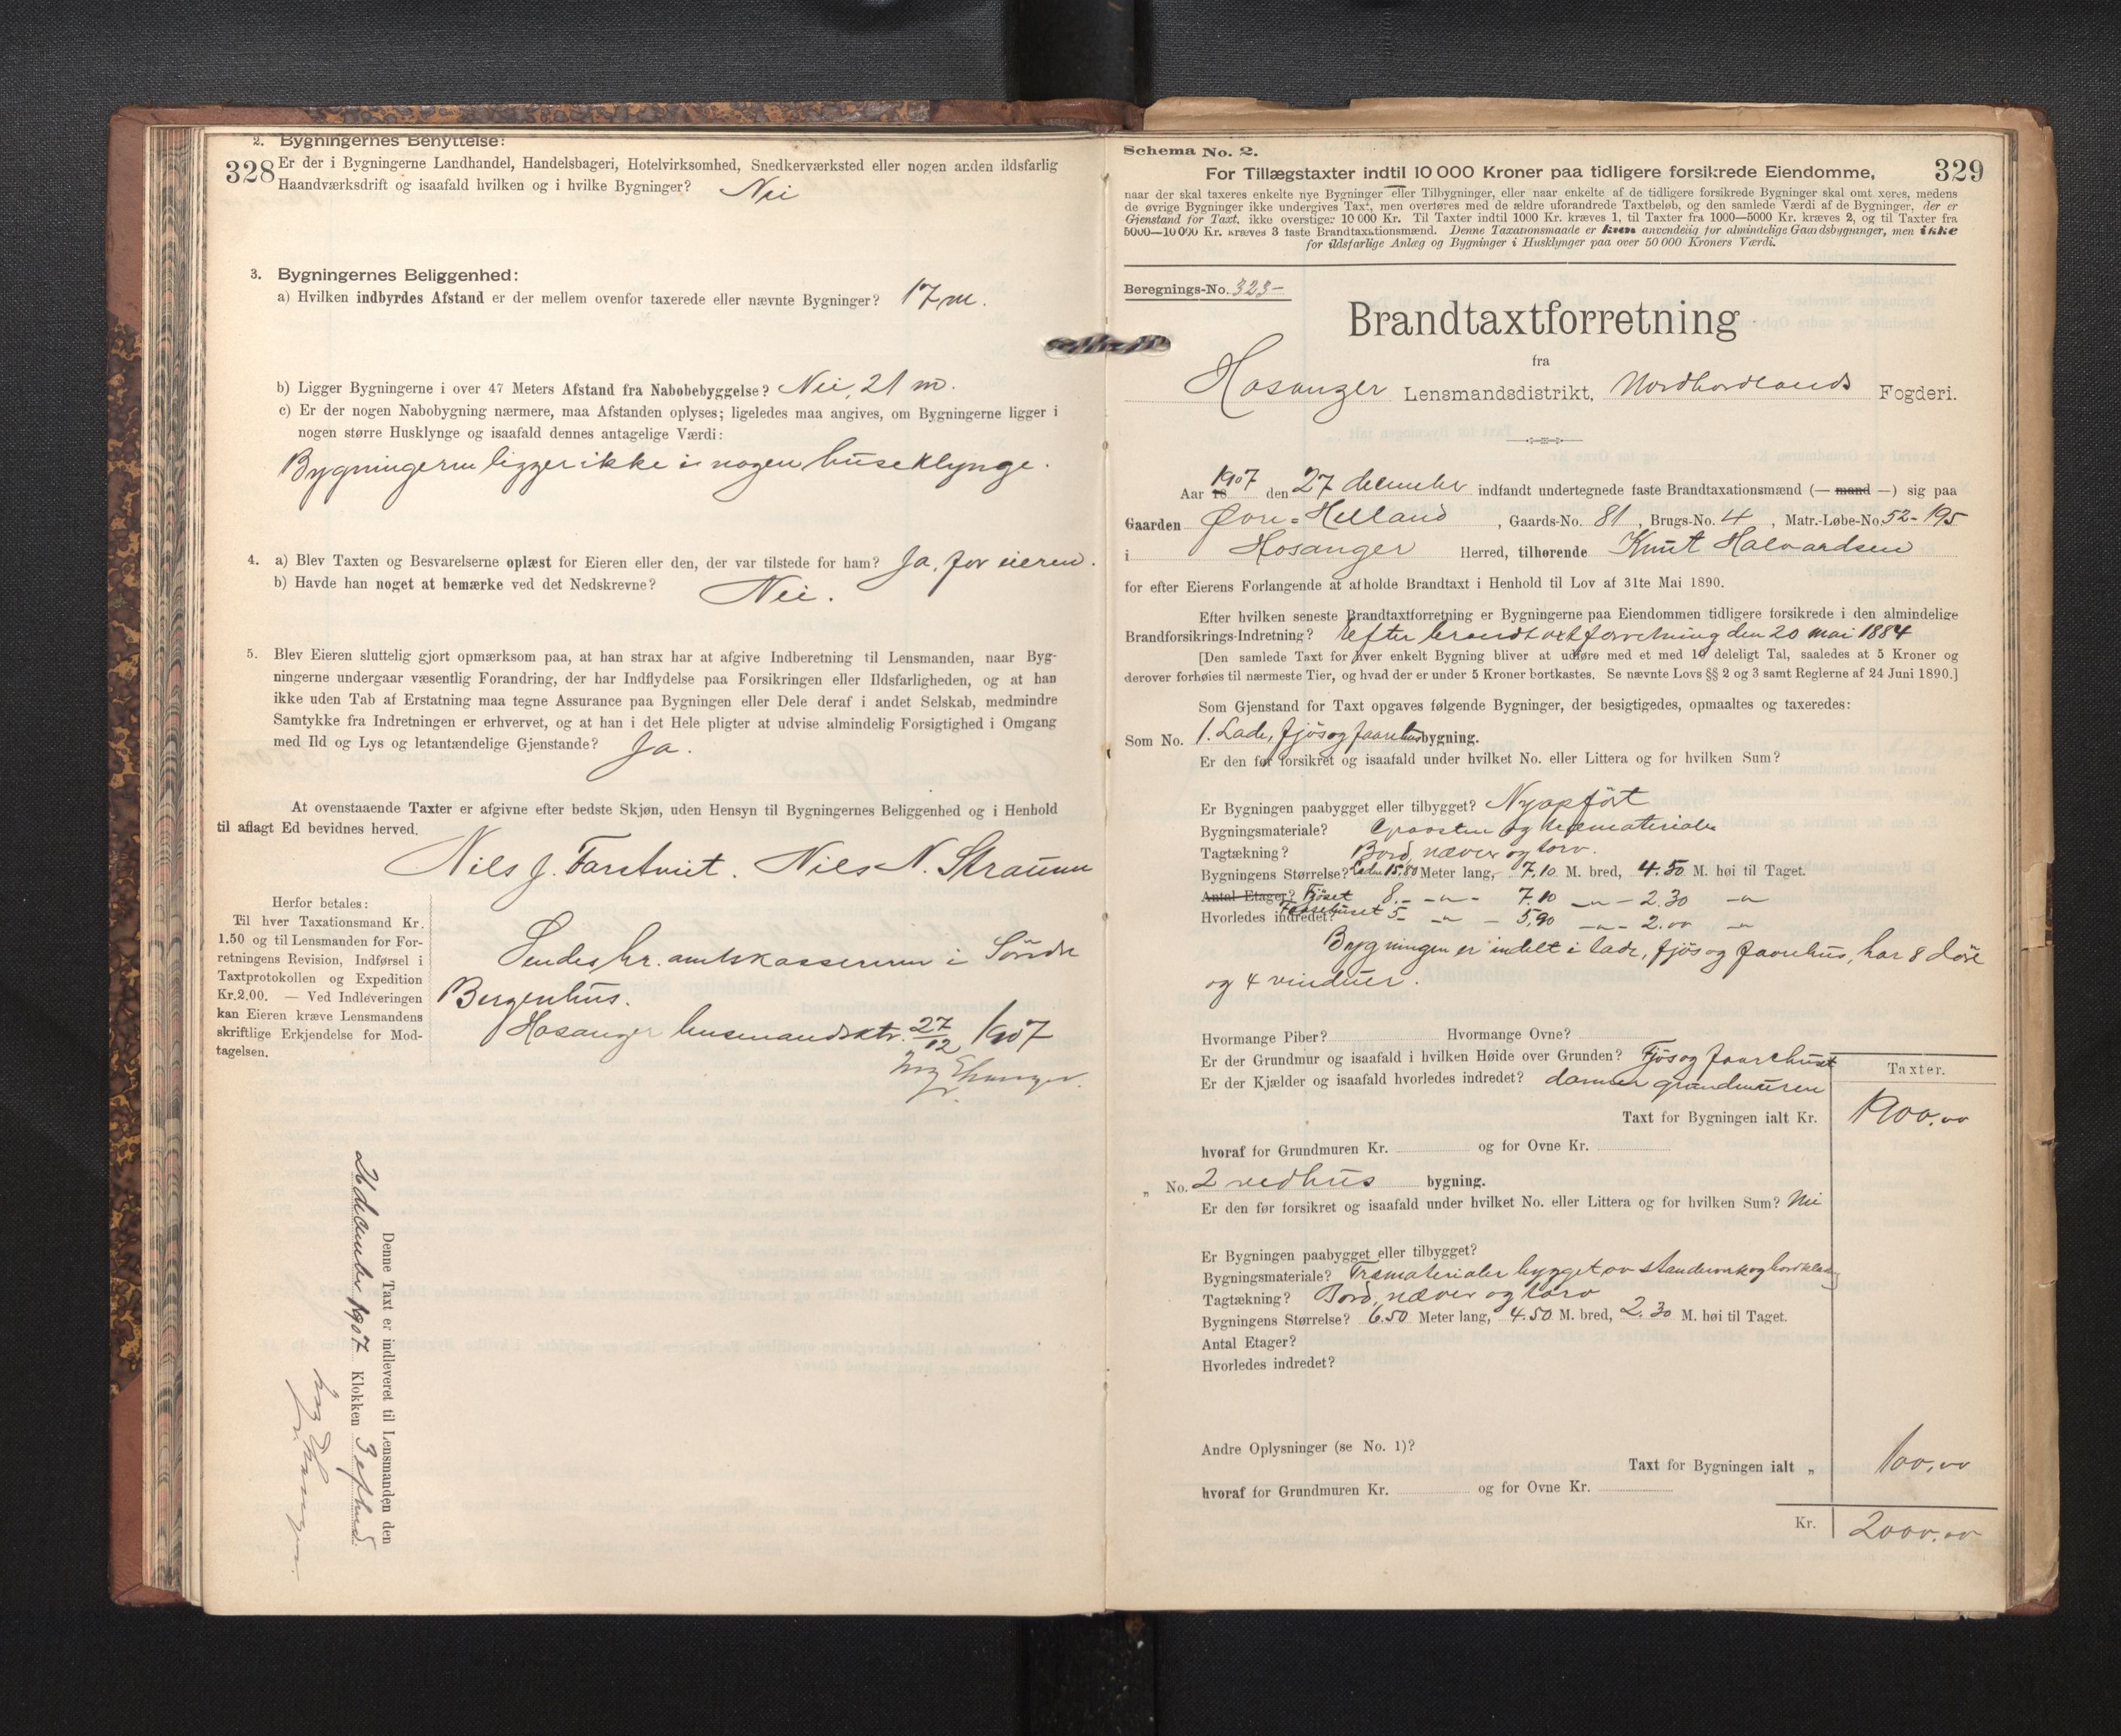 2. Bygningernes Benyttelse:
328 Er der i Bygningerne Landhandel, Handelsbageri, Hotelvirksomhed, Snedkerværksted eller nogen anden ildsfarlig
Haandværksdrift og isaafald hvilken og i hvilke Bygninger? Nei
3. Bygningernes Beliggenhed:
a) Hvilken indbyrdes Afstand er der mellem ovenfor taxerede eller nævnte Bygninger? 17 m.
b) Ligger Bygningerne i over 47 Meters Afstand fra Nabobebyggelse? Nei, 21 m.
c) Er der nogen Nabobygning nærmere, maa Afstanden oplyses; ligeledes maa angives, om Bygningerne ligger i
nogen større Husklynge og isaafald dennes antagelige Værdi:
Bygningerne ligger ikke i nogen huseklynge.
4. a) Blev Taxten og Besvarelserne oplæst for Eieren eller den, der var tilstede for ham? Ja, for eieren.
b) Havde han noget at bemærke ved det Nedskrevne? Nei.
5. Blev Eieren sluttelig gjort opmærksom paa, at han strax har at afgive Indberetning til Lensmanden, naar Byg-
ningerne undergaar væsentlig Forandring, der har Indflydelse paa Forsikringen eller Ildsfarligheden, og at han
ikke uden Tab af Erstatning maa tegne Assurance paa Bygningen eller Dele deraf i andet Selskab, medmindre
Samtykke fra Indretningen er erhvervet, og at han i det Hele pligter at udvise almindelig Forsigtighed i Omgang
med Ild og Lys og letantændelige Gjenstande? Ja.
At ovenstaaende Taxter er afgivne efter bedste Skjøn, uden Hensyn til Bygningernes Beliggenhed og i Henhold
til aflagt Ed bevidnes herved.
Nils J. Farstveit. Nils N. Straume
Herfor betales:
Til hver Taxationsmand Kr.
1.50 og til Lensmanden for For-
retningens Revision, Indførsel i
Taxtprotokollen og Expedition
Kr. 2.00. — Ved Indleveringen
kan Eieren kræve Lensmandens
skriftlige Erkjendelse for Mod-
tagelsen.
Sendes hr. amtskassereren i Søndre
Bergenhus.
Hosanger lensmandsktr. 27/12 1907
Denne Taxt er indleveret til Lensmanden den
december 1907 Klokken 3 efterm.
Schema No. 2.
329
For Tillægstaxter indtil 10 000 Kroner paa tidligere forsikrede Eiendomme,
naar der skal taxeres enkelte nye Bygninger eller Tilbygninger, eller naar enkelte af de tidligere forsikrede Bygninger skal omtaxeres, medens
de øvrige Bygninger ikke undergives Taxt, men overføres med de ældre uforandrede Taxtbeløb, og den samlede Værdi af de Bygninger, der er
Gjenstand for Taxt, ikke overstiger 10 000 Kr. Til Taxter indtil 1000 Kr. kræves 1, til Taxter fra 1000—5000 Kr. kræves 2, og til Taxter fra
5000—10 000 Kr. kræves 3 faste Brandtaxationsmænd. Denne Taxationsmaade er kun anvendelig for almindelige Gaardsbygninger, men ikke
for ildsfarlige Anlæg og Bygninger i Husklynger paa over 50 000 Kroners Værdi.
Beregnings-No. 323-
Brandtaxtforretning
fra
Hosanger Lensmandsdistrikt, Nordhordlands Fogderi.
Aar 18 1907 den 27 december indfandt undertegnede faste Brandtaxationsmænd (— mand —) sig paa
Gaarden Øvre-Helland, Gaards-No. 81, Brugs-No. 4, Matr.-Løbe-No. 52-195
i Hosanger Herred, tilhørende Knut Halvardsen
for efter Eierens Forlangende at afholde Brandtaxt i Henhold til Lov af 31te Mai 1890.
Efter hvilken seneste Brandtaxtforretning er Bygningerne paa Eiendommen tidligere forsikrede i den almindelige
Brandforsikrings-Indretning? Efter brandtaxtforretning den 20 mai 1884
[Den samlede Taxt for hver enkelt Bygning bliver at udføre med et med 10 deleligt Tal, saaledes at 5 Kroner og
derover forhøies til nærmeste Tier, og hvad der er under 5 Kroner bortkastes. Se nævnte Lovs §§ 2 og 3 samt Reglerne af 24 Juni 1890.]
Som Gjenstand for Taxt opgaves følgende Bygninger, der besigtigedes, opmaaltes og taxeredes:
Som No. 1. Lade, fjøs og faarehus bygning.
Er den før forsikret og isaafald under hvilket No. eller Littera og for hvilken Sum?
Er Bygningen paabygget eller tilbygget? Nyopført
Bygningsmateriale? Graasten og træmaterialer
Tagtækning? Bord, næver og torv.
Bygningens Størrelse? Laden 15,80 Meter lang, 7.10 M. bred, 4.50 M. høi til Taget.
Antal Etager? Fjøset 8.- -"- 7.10 -"- 2.30 -"-
Hvorledes indredet? Faarehuset 5- -"- 5,90 -"- 2.00 -"-
Bygningen er indelt i lade, fjøs og faarehus, har 8 døre
og 4 vinduer.
Hvormange Piber? Hvormange Ovne?
Er der Grundmur og isaafald i hvilken Høide over Grunden? Fjøs og faarehuset
Er der Kjælder og isaafald hvorledes indredet? danner grundmuren
Taxter.
Taxt for Bygningen ialt Kr. 1900,00
hvoraf for Grundmuren Kr. og for Ovne Kr.
„ No. 2 vedhus bygning.
Er den før forsikret og isaafald under hvilket No. eller Littera og for hvilken Sum? Nei
Er Bygningen paabygget eller tilbygget?
Bygningsmateriale? Træmaterialer bygget av standerverk og bordklædd
Tagtækning? Bord, næver og torv
Bygningens Størrelse? 6.50 Meter lang, 4.50 M. bred, 2.30 M. høi til Taget.
Antal Etager?
Hvorledes indredet?
Andre Oplysninger (se No. 1)?
Taxt for Bygningen ialt „ 100,00
hvoraf for Grundmuren Kr. og for Ovne Kr.
Kr. 2000,00